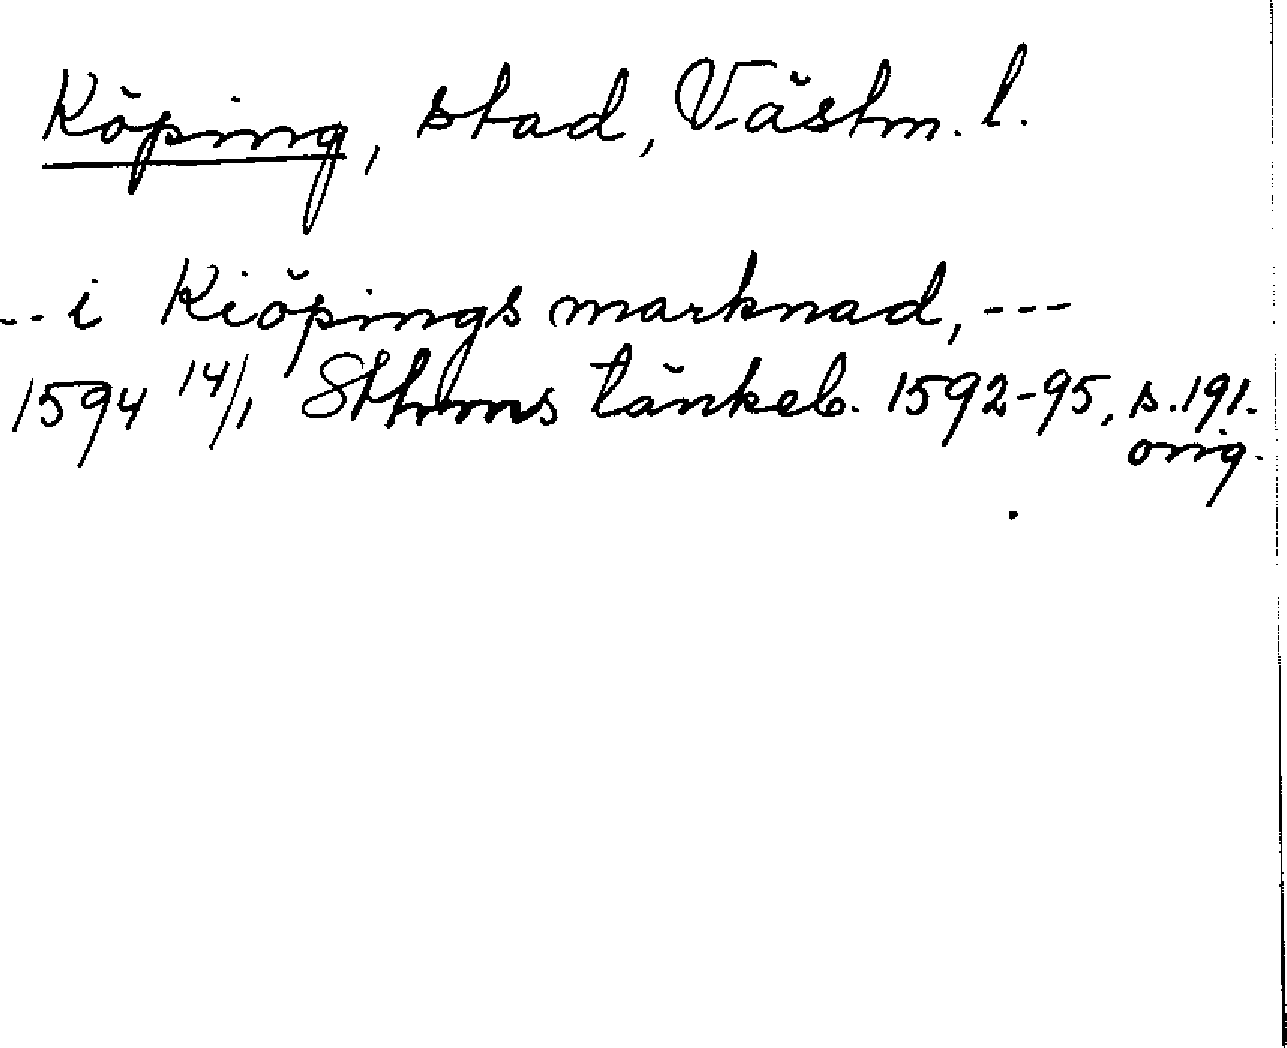 Köping, stad, Västm. l.
--i Kiöpings marknad, ---
1594 14/1 Sthms tänkeb. 1592-95, s.191.
orig.